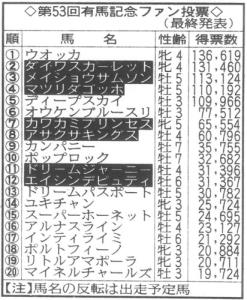 ◇第53回有馬記念ファン投票◇
(最終発表)
順 馬名 性齢 得票数
① ウオッカ 牝4 136,619
② ダイワスカーレット 牝4 121,460
③ メイショウサムソン 牡5 113,124
④ マツリダゴッホ 牡5 110,192
⑤ ディープスカイ 牡3 109,966
⑥ オウケンブルースリ 牡3 77,512
⑦ カワカミプリンセス 牝5
⑧ アサクサキングス 牡4 60,796
⑨ カンパニー 牡7 35,755
⑩ ポップロック 牡7 32,682
⑪ ドリームジャーニー 牡4 31,396
⑫ エイシンデピュティ 牡6
⑬ ドリームパスポート 牡5 30,267
⑭ ユキチャン 牝3 25,724
⑮ スーパーホーネット 牡5 24,695
⑯ アルナスライン 牡4 23,127
⑰ インティライミ 牡6 21,292
⑱ ポルトフィーノ 牝3 20,884
⑲ リトルアマポーラ 牝3 20,711
⑳ マイネルチャールズ 牡3 19,724
[注]馬名の反転は出走予定馬